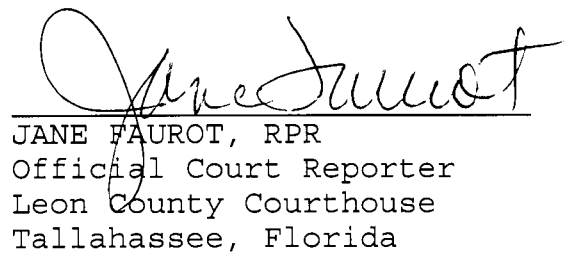 Jane Faurot
JANE FAUROT, RPR
Official Court Reporter
Leon County Courthouse
Tallahassee, Florida